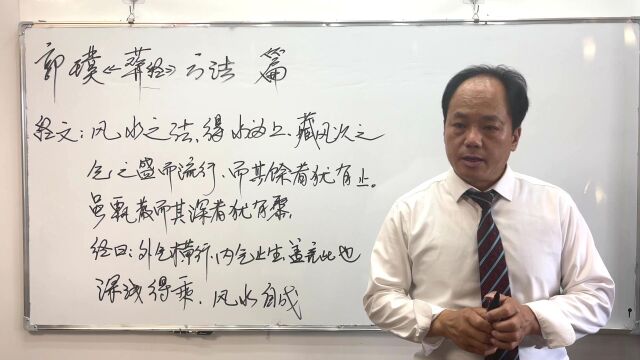 郭璞《葬经》方法 篇
经文：风水之法，得水为上，藏风次之
气之盛而流行，而其馀者犹有止。
虽零散而其深者犹有聚。
经曰：外气横行，内气止生，盖言此也
深浅得乘，风水自成